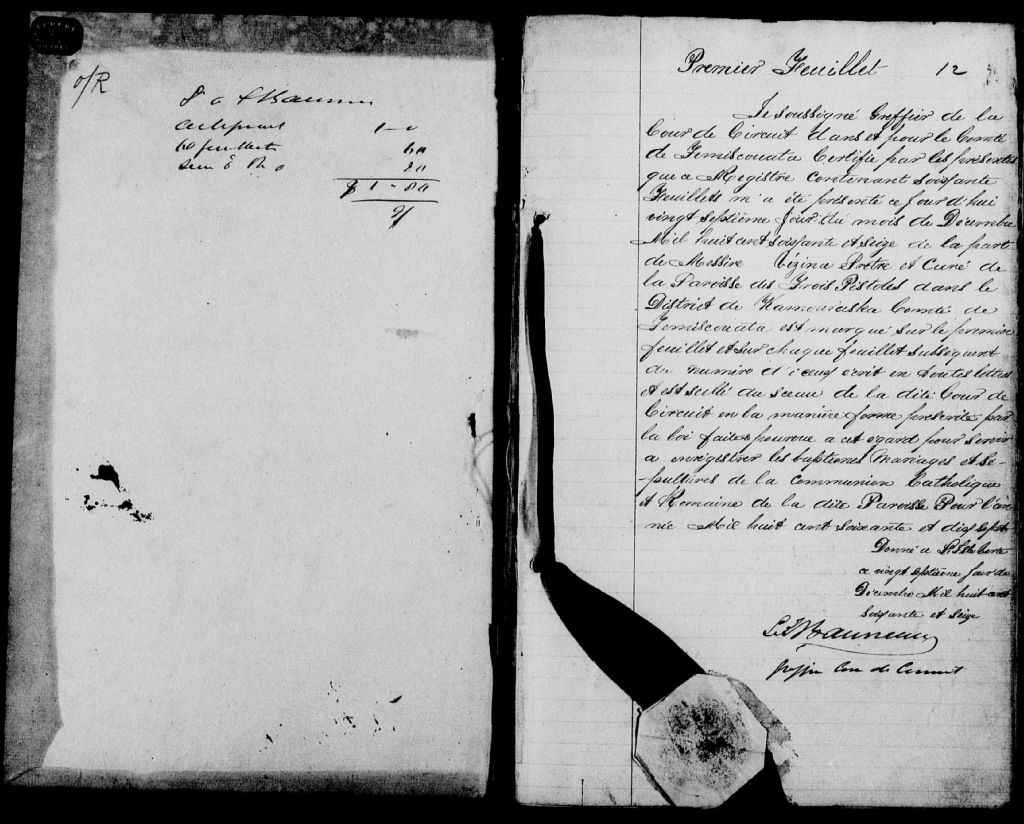 o/R
60 feuillets 60
80
$ 1-80
Premier Feuillet 12
Je soussigné Greffier de la
Cour de Circuit dans et pour le Comté
de Temiscouata Certifie par les présentes
que ce Registre Contenant soixante
Feuillets m'a été présenté ce jour d'hui
vingt septième jour du mois de Décembre
Mil huit cent soixante et seize de la part
de Messire Vézina Prêtre et Curé de
la Paroisse des Trois Pistoles dans le
District de Kamouraska Comté de
Temiscouata est marqué sur le premier
feuillet et sur chaque feuillet subséquent
du numéro d'iceux écrit en toutes lettres
et est scellé du sceau de la dite Cour de
Circuit en la manière forme prescrite par
la loi faite & pourvue a cet égard pour servir
a enregistrer les baptêmes Mariages et Sé-
pultures de la Communion Catholique
et Romaine de la dite Paroisse Pour l'an-
née Mil huit cent soixante et dix sept
Donné a
ce vingt septième jour de
Décembre Mil huit cent
soixante et seize